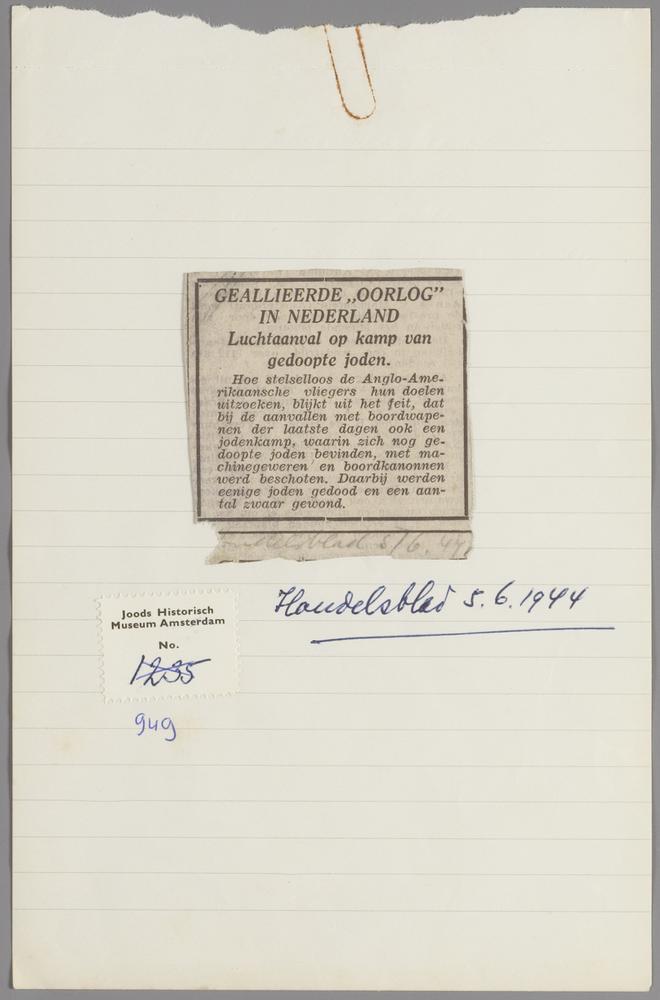 GEALLIEERDE „OORLOG”
IN NEDERLAND
Luchtaanval op kamp van
gedoopte joden.
Hoe stelselloos de Anglo-Ame-
rikaansche vliegers hun doelen
uitzoeken, blijkt uit het feit, dat
bij de aanvallen met boordwape-
nen der laatste dagen ook een
jodenkamp, waarin zich nog ge-
doopte joden bevinden, met ma-
chinegeweren en boordkanonnen
werd beschoten. Daarbij werden
eenige joden gedood en een aan-
tal zwaar gewond.
ndelsblad 5/6. 44
Handelsblad 5.6.1944
Joods Historisch
Museum Amsterdam
No.
1235
949